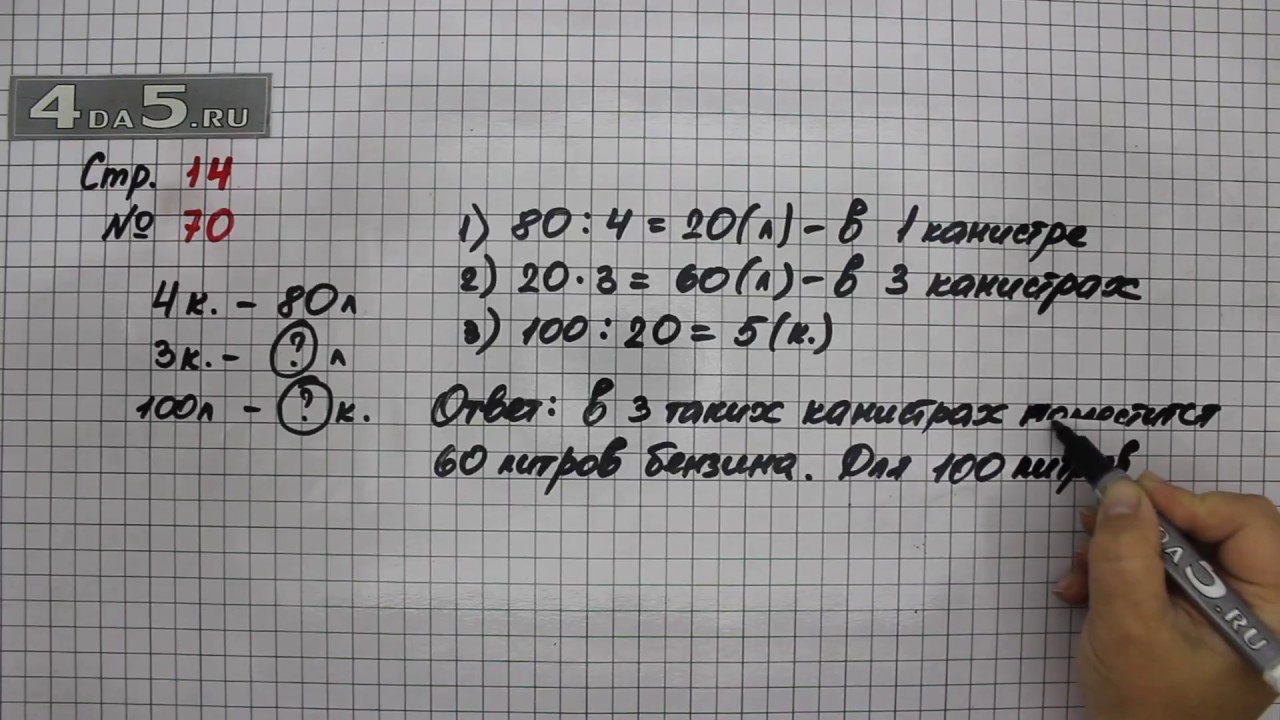 4DA5.RU
Стр. 14
№ 70
4к. - 80л
3к. - ? л
100л - ? к.
1) 80 : 4 = 20(л) - в 1 канистре
2) 20 · 3 = 60(л) - в 3 канистрах
3) 100 : 20 = 5(к.)
Ответ: в 3 таких канистрах поместится
60 литров бензина. Для 100 литров
DA5.RU